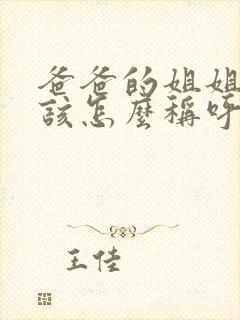 爸爸的姐姐
該怎麼稱呼
王佳